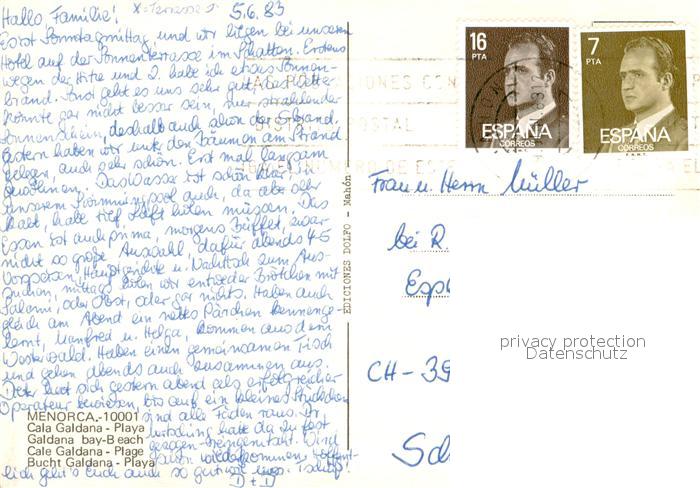 Hallo, Familie! X = Terrasse 5.6.83
Es ist Sonntagmittag und wir liegen bei unserem
Hotel auf der Sonnenterrasse im Schatten. Erstens
wegen der Hitze und 2. habe ich etwas Sonnen-
brand. Sonst geht es uns sehr gut, das Wetter
könnte gar nicht besser sein, nur strahlender
Sonnenschein, deshalb auch schon der Sbrand.
Gestern haben wir unter den Bäumen am Strand
gelegen, auch sehr schön. Erst mal langsam
gewöhnen. Das Wasser ist schön klar, in
unserem Swimmingpool auch, da aber sehr
kalt, habe tief Luft holen müssen. Das
Essen ist auch prima, morgens Büffet, zwar
nicht so große Auswahl, dafür abends 4-5
Vorspeisen, Hauptgerichte u. Nachtisch zum Aus-
suchen, mittags holen wir entweder Brötchen mit
Salami, oder Obst, oder gar nichts. Haben auch
gleich am Abend ein nettes Pärchen kennenge-
lernt, Manfred u. Helga, kommen aus dem
Westerwald. Haben einen gemeinsamen Tisch
und gehen abends auch zusammen aus.
Dieter hat sich gestern abend als erfolgreicher
Operateur bewiesen, bis auf ein kleines Stückchen
sind alle Fäden raus. Dr.
hatte da zu fest
Wird
schon wiederkommen, hoffent-
lich geht's Euch auch so gut wie uns. Tschüß!
D + D
MENORCA.-10001
Cala Galdana - Playa
Galdana bay-Beach
Cale Galdana - Plage
Bucht Galdana - Playa
EDICIONES DOLFO - Mahón
16
PTA
ESPAÑA
CORREOS
F.N.M.T.
7
PTA
ESPAÑA
CORREOS
F.N.M.T.
Frau u. Herrn Müller
bei R.
CH - 39
privacy protection
Datenschutz